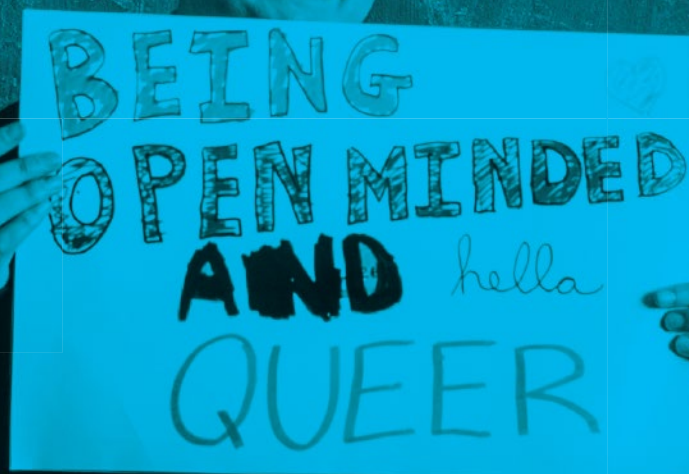 BEING
OPEN MINDED
AND hella
QUEER